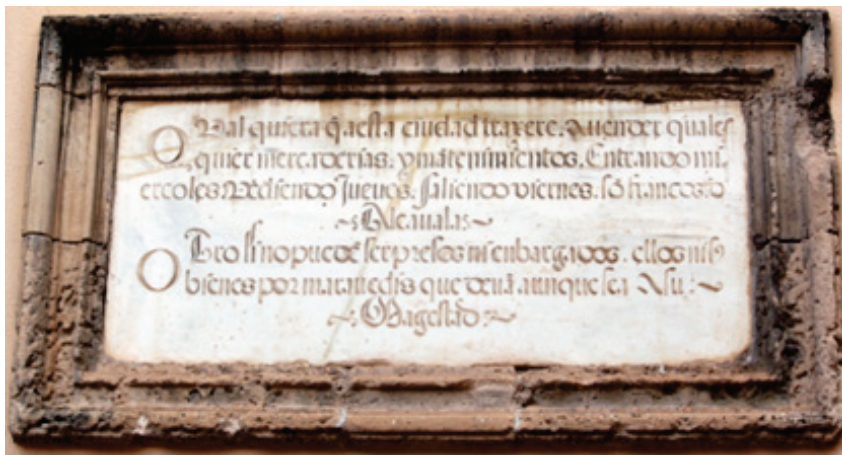 Qual quiera q̃ a esta ciudad traxere. A vender quales
quier mercaderias. y mãtenimientos. Entrando mi
ercoles Vẽdiendo Juevos. saliendo viernes. sõ francos đ
~ Alcavalas ~
Otro si no puedẽ ser presos ni enbargados. ellos ni sꝰ
bienes por maravedis que devã aunque sea A su : ~
~ : Magestad : ~